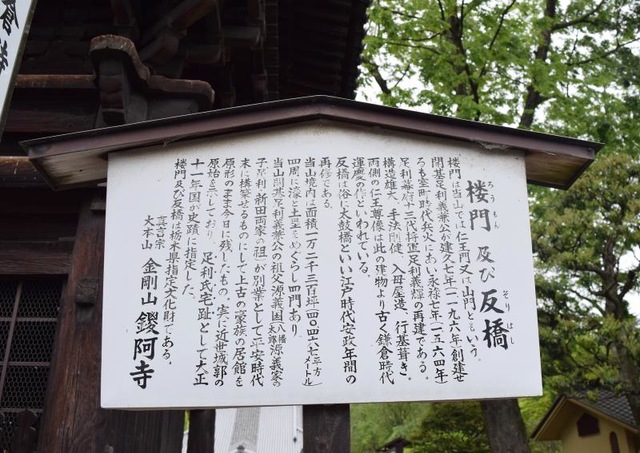 楼門及び反橋
ろうもん
そりはし
楼門は当山では仁王門又は山門ともいう。
開基足利義兼公が建久七年(一一九六年)創建せ
るも室町時代兵火にあい永禄七年(一五六四年)
足利幕府十三代将軍足利義輝の再建である。
構造雄大、手法剛健、入母屋造、行基葺き。
両側の仁王尊像は此の建物より古く鎌倉時代
運慶の作といわれている。
反橋は俗に太鼓橋といい江戸時代安政年間の
再修である。
当山境内は面積一万二千三百坪(四〇六七平方メートル)
四周に濠と土塁をめぐらし四門あり。
当山開基足利義兼公の祖父源義国(八幡太郎源義家の
子足利・新田両家の祖)が別業として平安時代
末に構築せるものにして上古の豪族の居館を
原形のまま今日に残したもの。実に近世城郭の
原始を示しており、足利氏宅趾として大正
十一年国が史蹟に指定した。
楼門及び反橋は栃木県指定文化財である。
真言宗
大本山 金剛山 鑁阿寺